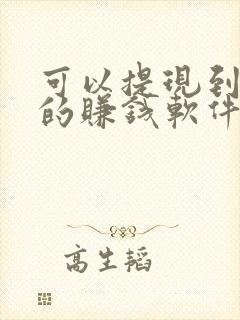 可以提現到
的賺錢軟件
高生韬